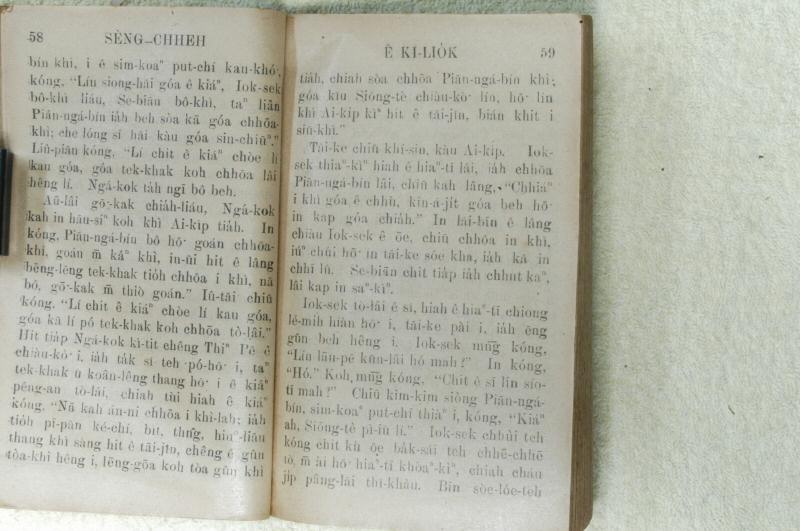 58 SÈNG–CHHEH
bín khì, i ê sim-koaⁿ put-chí kau-khó͘,
kóng, “Lín siong-hāi góa ê kiáⁿ, Iok-sek
bô-khì liáu, Se-biān bô-khì, taⁿ liân
Piān-ngá-bín iáh beh sòa kā góa chhōa-
khì; che lóng sī hāi kàu góa sin-chiūⁿ.”
Liû-piān kóng, “Lí chit ê kiáⁿ chòe lí
kau góa, góa tek-khak koh chhōa lâi
hêng lí. Ngá-kok táh ngī bô beh.
Aū-lâi gō͘-kak chiáh-liáu, Ngá-kok
kah in hāu-siⁿ koh khì Ai-kíp tiáh. In
kóng, Piān-ngá-bín bô hō͘ goán chhōa-
khì, goán m̄ káⁿ khì, in-ūi hit ê lâng
bēng-lēng tek-khak tióh chhōa i khì, nā
bô, gō͘-kak m̄ thiò goán.” Iû-tāi chiū
kóng, “Lí chit ê kiáⁿ chòe lí kau góa,
góa kā lí pó tek-khak koh chhōa tò-lâi.”
Hit tiáp Ngá-kok kì-tit chêng Thiⁿ Pē ê
chiàu-kò͘ i, iáh ták sî teh pó-hō͘ i, taⁿ
tek-khak ū koân-lêng thang hō͘ i ê kiáⁿ
pêng-an tò-lâi, chiah tùi hiah ê kiáⁿ
kóng, “Nā kah án-ni chhōa i khì-lah; iáh
tióh pī-pān ké-chí, bít, thn̂g, hiuⁿ-liāu
thang khì sàng hit ê tāi-jîn, chêng ê gûn
tòa-khì hêng i, lēng-gōa koh tòa gûn khì
Ê KÌ-LIÓK 59
tiáh, chiah sòa chhōa Piān-ngá-bín khì;
góa kiû Siōng-tè chiàu-kò͘ lín, hō͘ lín
khì Ai-kíp kìⁿ hit ê tāi-jîn, biān khit i
siū-khì.”
Tāi-ke chiū khí-sin, kàu Ai-kíp. Iok-
sek thiaⁿ-kìⁿ hiah ê hiaⁿ-tī lâi, iáh chhōa
Piān-ngá-bín lâi, chiū kah lâng, “Chhiáⁿ
i khì góa ê chhù, kin-á-jít góa beh hō͘
in kap góa chiáh.” In lāi-bīn ê lâng
chiàu Iok-sek ê ōe, chiū chhōa in khì,
iúⁿ chúi hō͘ in tāi-ke sóe kha, iáh kā in
chhī lû. Se-biān chit tiáp iáh chhut kaⁿ,
lâi kap in saⁿ-kìⁿ.
Iok-sek tò-lâi ê sî, hiah ê hiaⁿ-tī chiong
lé-mih hiàn hō͘ i, tāi-ke pài i, iáh ēng
gûn beh hêng i. Iok-sek mn̄g kóng,
“Lín lāu-pē kūn-lâi hó mah?” In kóng,
“Hó.” Koh mn̄g kóng, “Chit ê sī lín sió-
tī mah?” Chiū kim-kim siòng Piān-ngá-
bín, sim-koaⁿ put-chí thiàⁿ i, kóng, “Kiáⁿ
ah, Siōng-tè pì-iū lí.” Iok-sek chhùi teh
kóng chit kù ōe bák-sái teh chhē-chhē
tò, m̄ ài hō͘ hiaⁿ-tī khòaⁿ-kìⁿ, chiah cháu
jíp pâng-lāi thî-khàu. Bīn sòe-lóe-teh